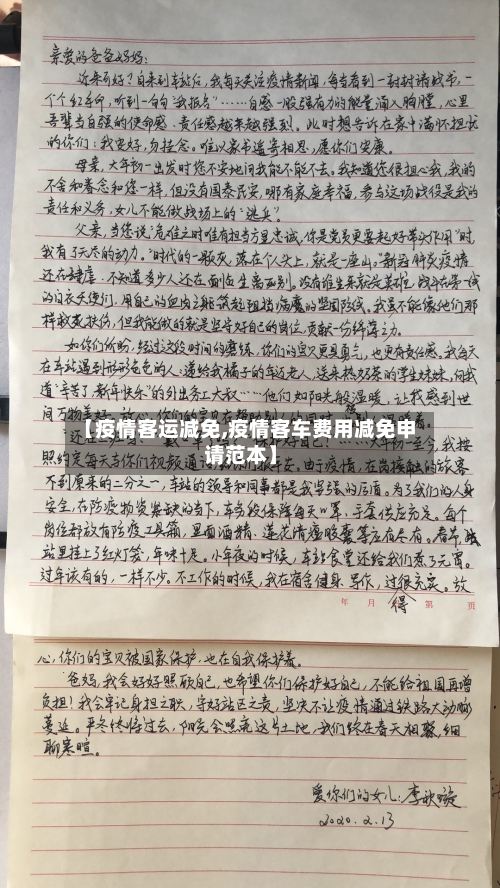 亲爱的爸爸妈妈：
近来可好？自来到车站后，我每天关注疫情新闻，每当看到一封封请战书，一
个个红手印，听到一句句“我报名”……自感一股强有力的能量涌入胸膛，心里
吾辈当自强的使命感、责任感越来越强烈。此时想告诉在家中满怀担忧
的你们：我安好，勿挂念。唯以家书遥寄相思，愿你们安康。
母亲，大年初一出发时您不安地问我能不能不去。我知道您很担心我，我的
不舍和眷恋和您一样，但没有国泰民安，哪有家庭幸福，参与这场战役是我的
责任和义务，女儿不能做战场上的“逃兵”。
父亲，当您说“危难之时唯有担当方显忠诚，你是党员更要起好带头作用”时，
我有了无尽的动力。“时代的一颗灰，落在个人头上，就是一座山。”新冠肺炎疫情
还在肆虐，不知道多少人还在面临生离死别。没有谁生来就是英雄，战斗在第一线
的白衣天使们，用自己的血肉之躯筑起阻挡病魔的坚固防线。我虽不能像他们那
样救死扶伤，但我能做的就是坚守好自己的岗位，贡献一份绵薄之力。
如你们所盼，经过这段时间的磨练，你们的宝贝更具勇气，也更有责任感。我每天
在车站遇到形形色色的人：递给我橘子的车边老人，送来热奶茶的学生妹妹，向我
道“辛苦了，新年快乐”的外出务工大叔……他们如阳光般温暖，让我感到世
间万物美好。放心，你们的宝贝在帮助别人的同时，
【疫情客运减免,疫情客车费用减免申
请范本】
大年初一至今，我按
照约定每天与你们视频通
由于疫情，在岗接触的旅客
不到原来的二分之一，车站的领导和同事都是我坚强的后盾。为了我们的人身
安全，在防疫物资紧缺的当下，车务段保障每天口罩、手套供应充足。每个
岗位都放有防疫工具箱，里面酒精、莲花清瘟胶囊等应有尽有。春节，
站里挂上了红灯笼，年味十足。小年夜的时候，车站食堂还给我们煮了元宵。
过年该有的，一样不少。不工作的时候，我在宿舍健身、写作，过得很充实。放
年 月 第 页
心，你们的宝贝被国家保护，也在自我保护着。
爸妈，我会好好照顾自己，也希望你们保护好自己，不能给祖国再增
负担！我会牢记身担之职，守好站区之责，坚决不让疫情通过铁路大动脉
蔓延。严冬终将过去，阳光会照亮这片土地，我们终在春天相聚，细
聊寒暄。
爱你们的女儿：李欣璇
2020.2.13